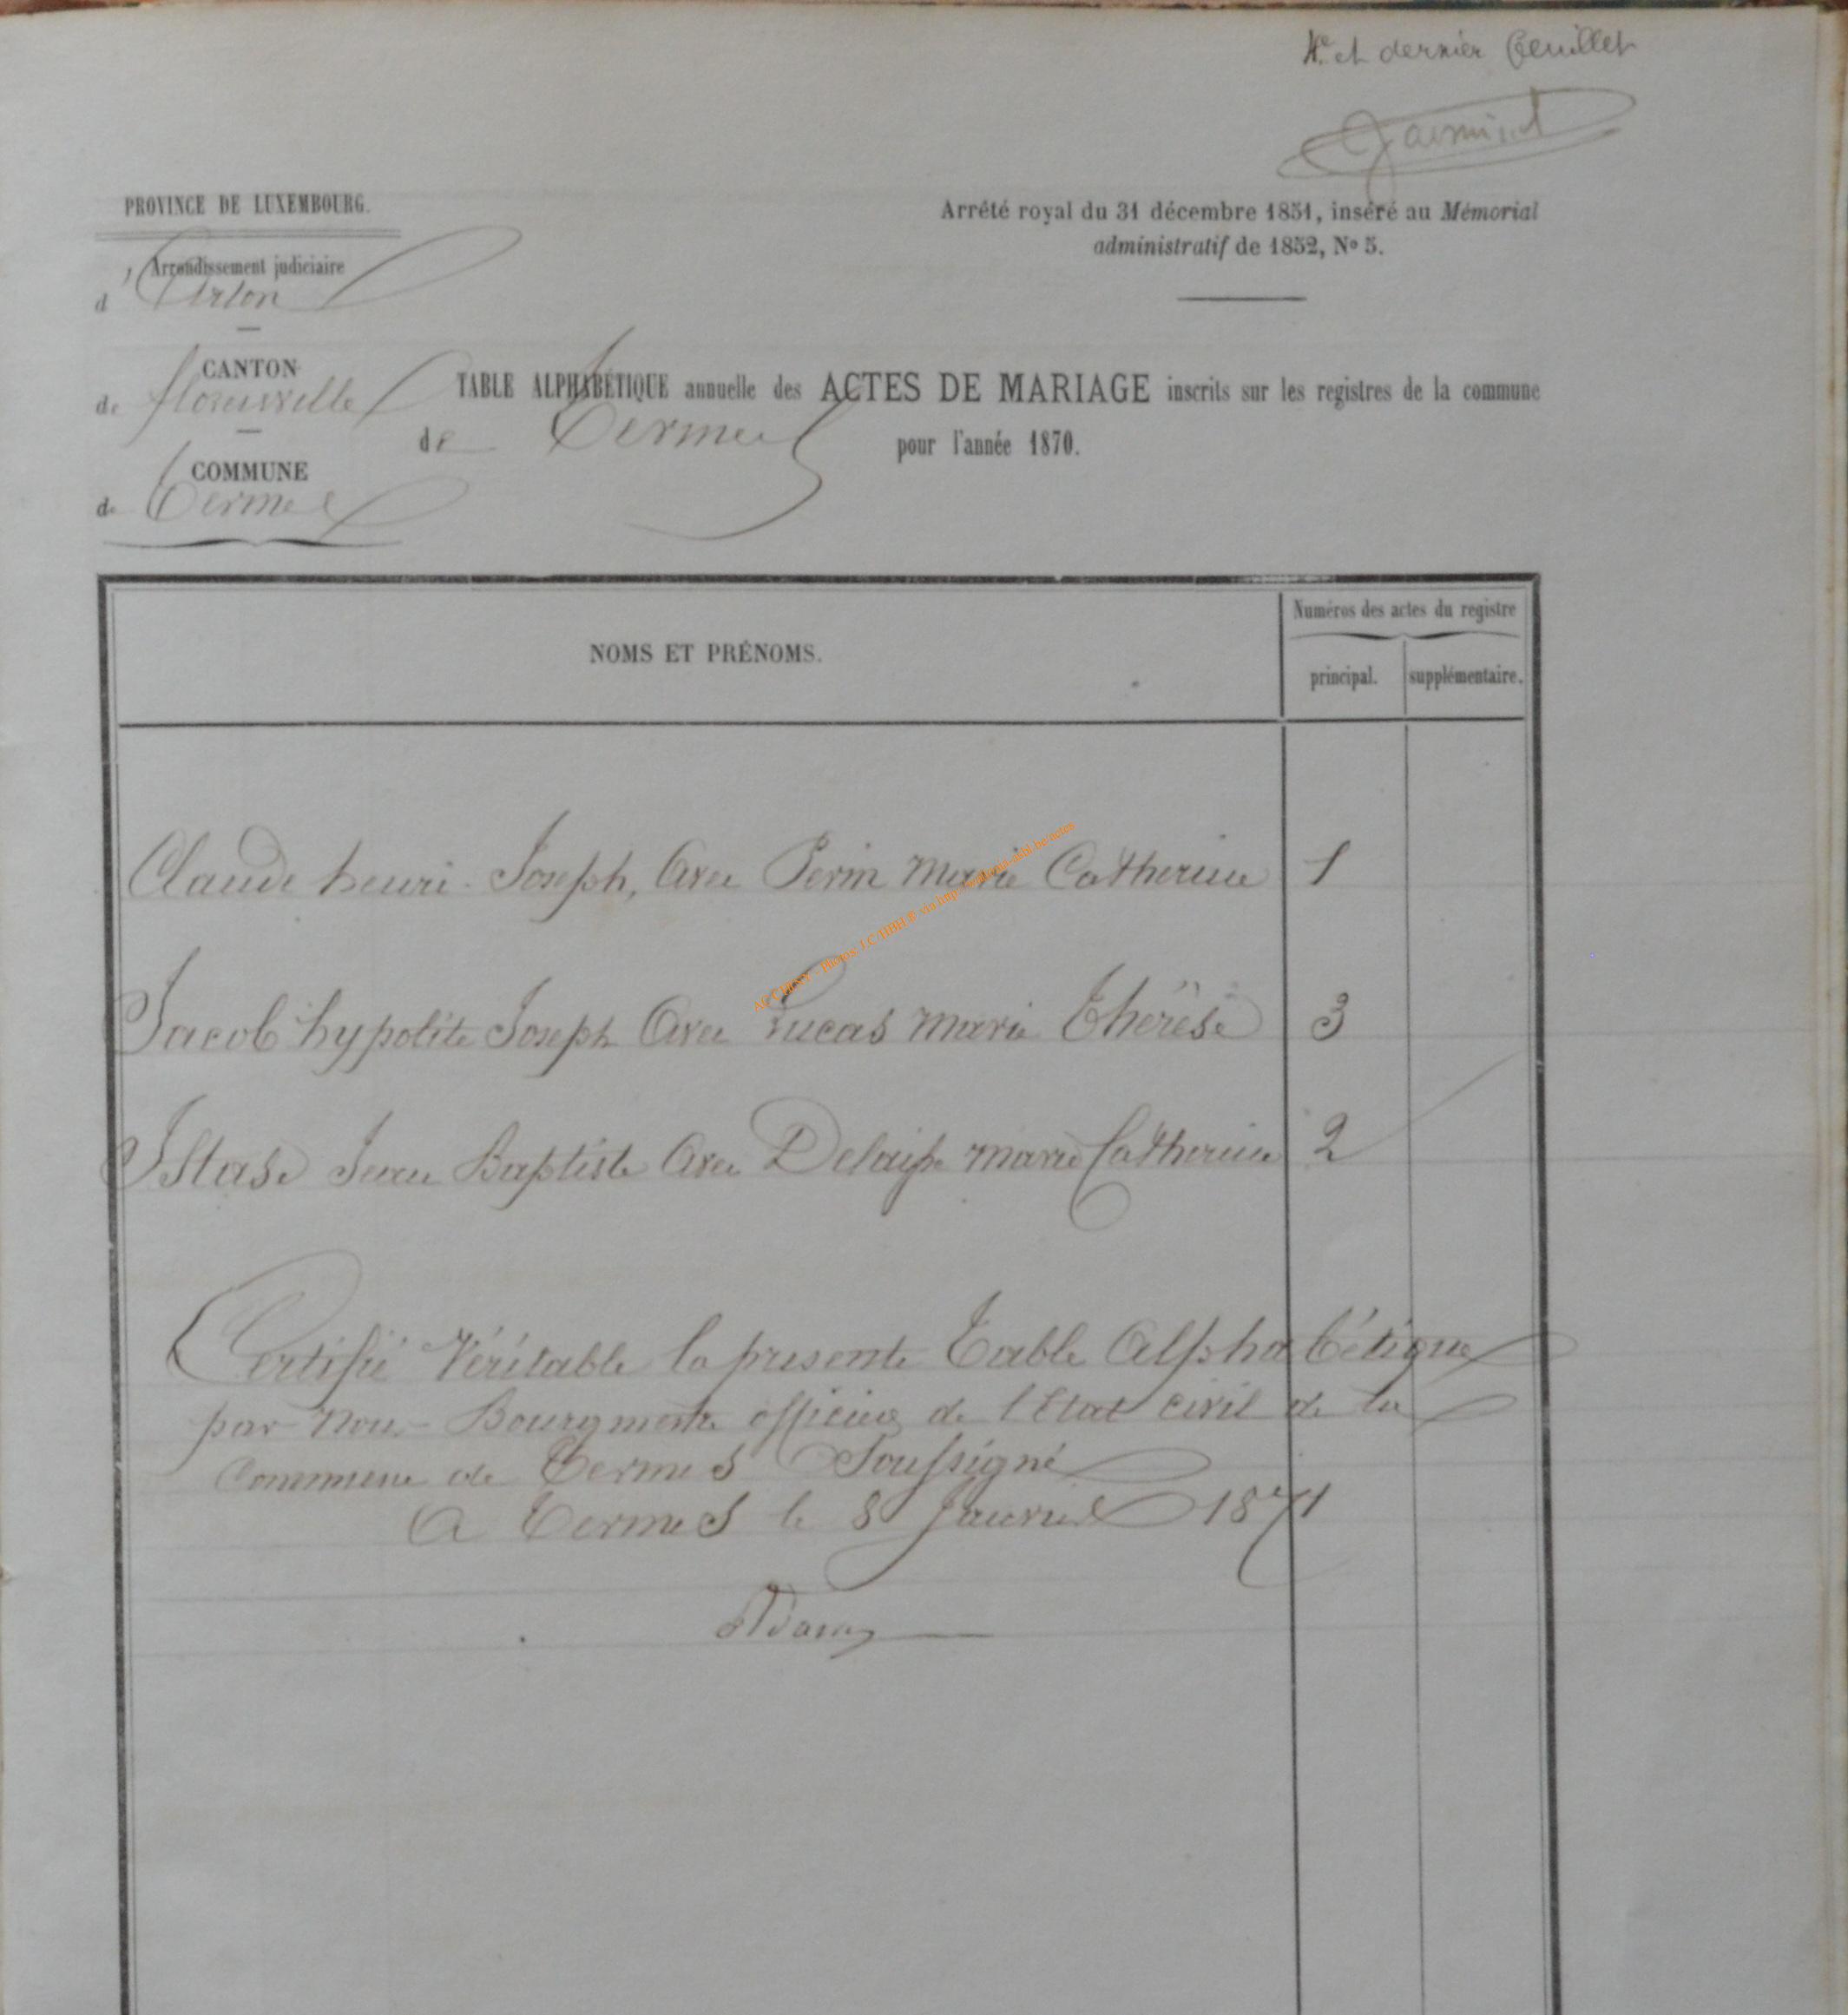 4e et dernier feuillet
PROVINCE DE LUXEMBOURG.
Arrêté royal du 31 décembre 1851, inséré au Mémorial
administratif de 1852, No 5.
Arrondissement judiciaire
d'Arlon
CANTON
de florenville
TABLE ALPHABÉTIQUE annuelle des ACTES DE MARIAGE inscrits sur les registres de la commune
de Termes pour l'année 1870.
COMMUNE
de Termes
NOMS ET PRÉNOMS.
Numéros des actes du registre
principal. supplémentaire.
Claude henri Joseph, Avec Perin Marie Catherine 1
Jacob hypolite Joseph Avec Lucas Marie Thérèse 3
Istase Jean Baptiste Avec Delaisse marie Catherine 2
Certifié Véritable la presente Table Alphabétique
par Nous Bourgmestre officier de l'Etat civil de la
Commune de Termes Soussigné
A Termes le 8 Janvier 1871
Adam